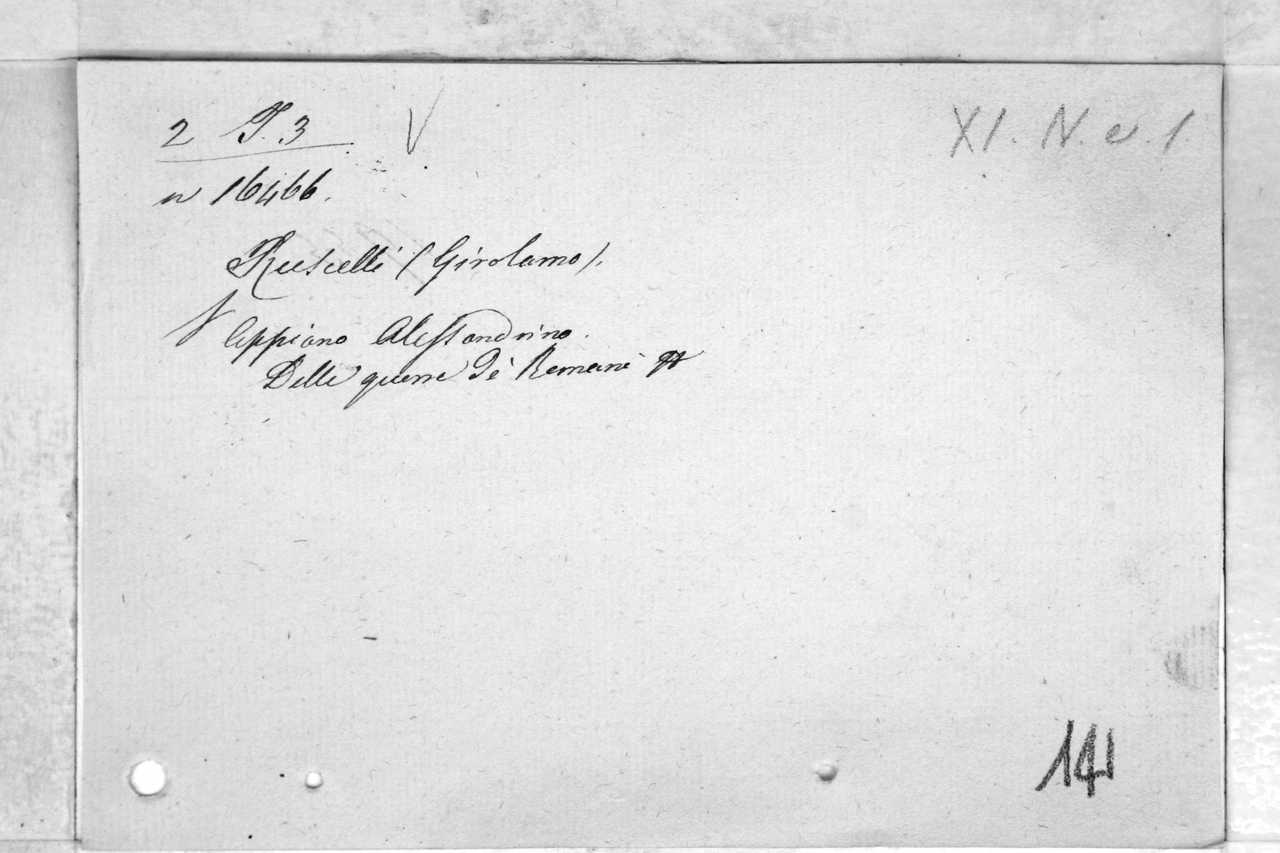 2 T. 3 V
XI. N. e. 1
n 16466.
Ruscelli (Girolamo).
V Appiano Alessandrino.
Delle guerre dè Romani
141